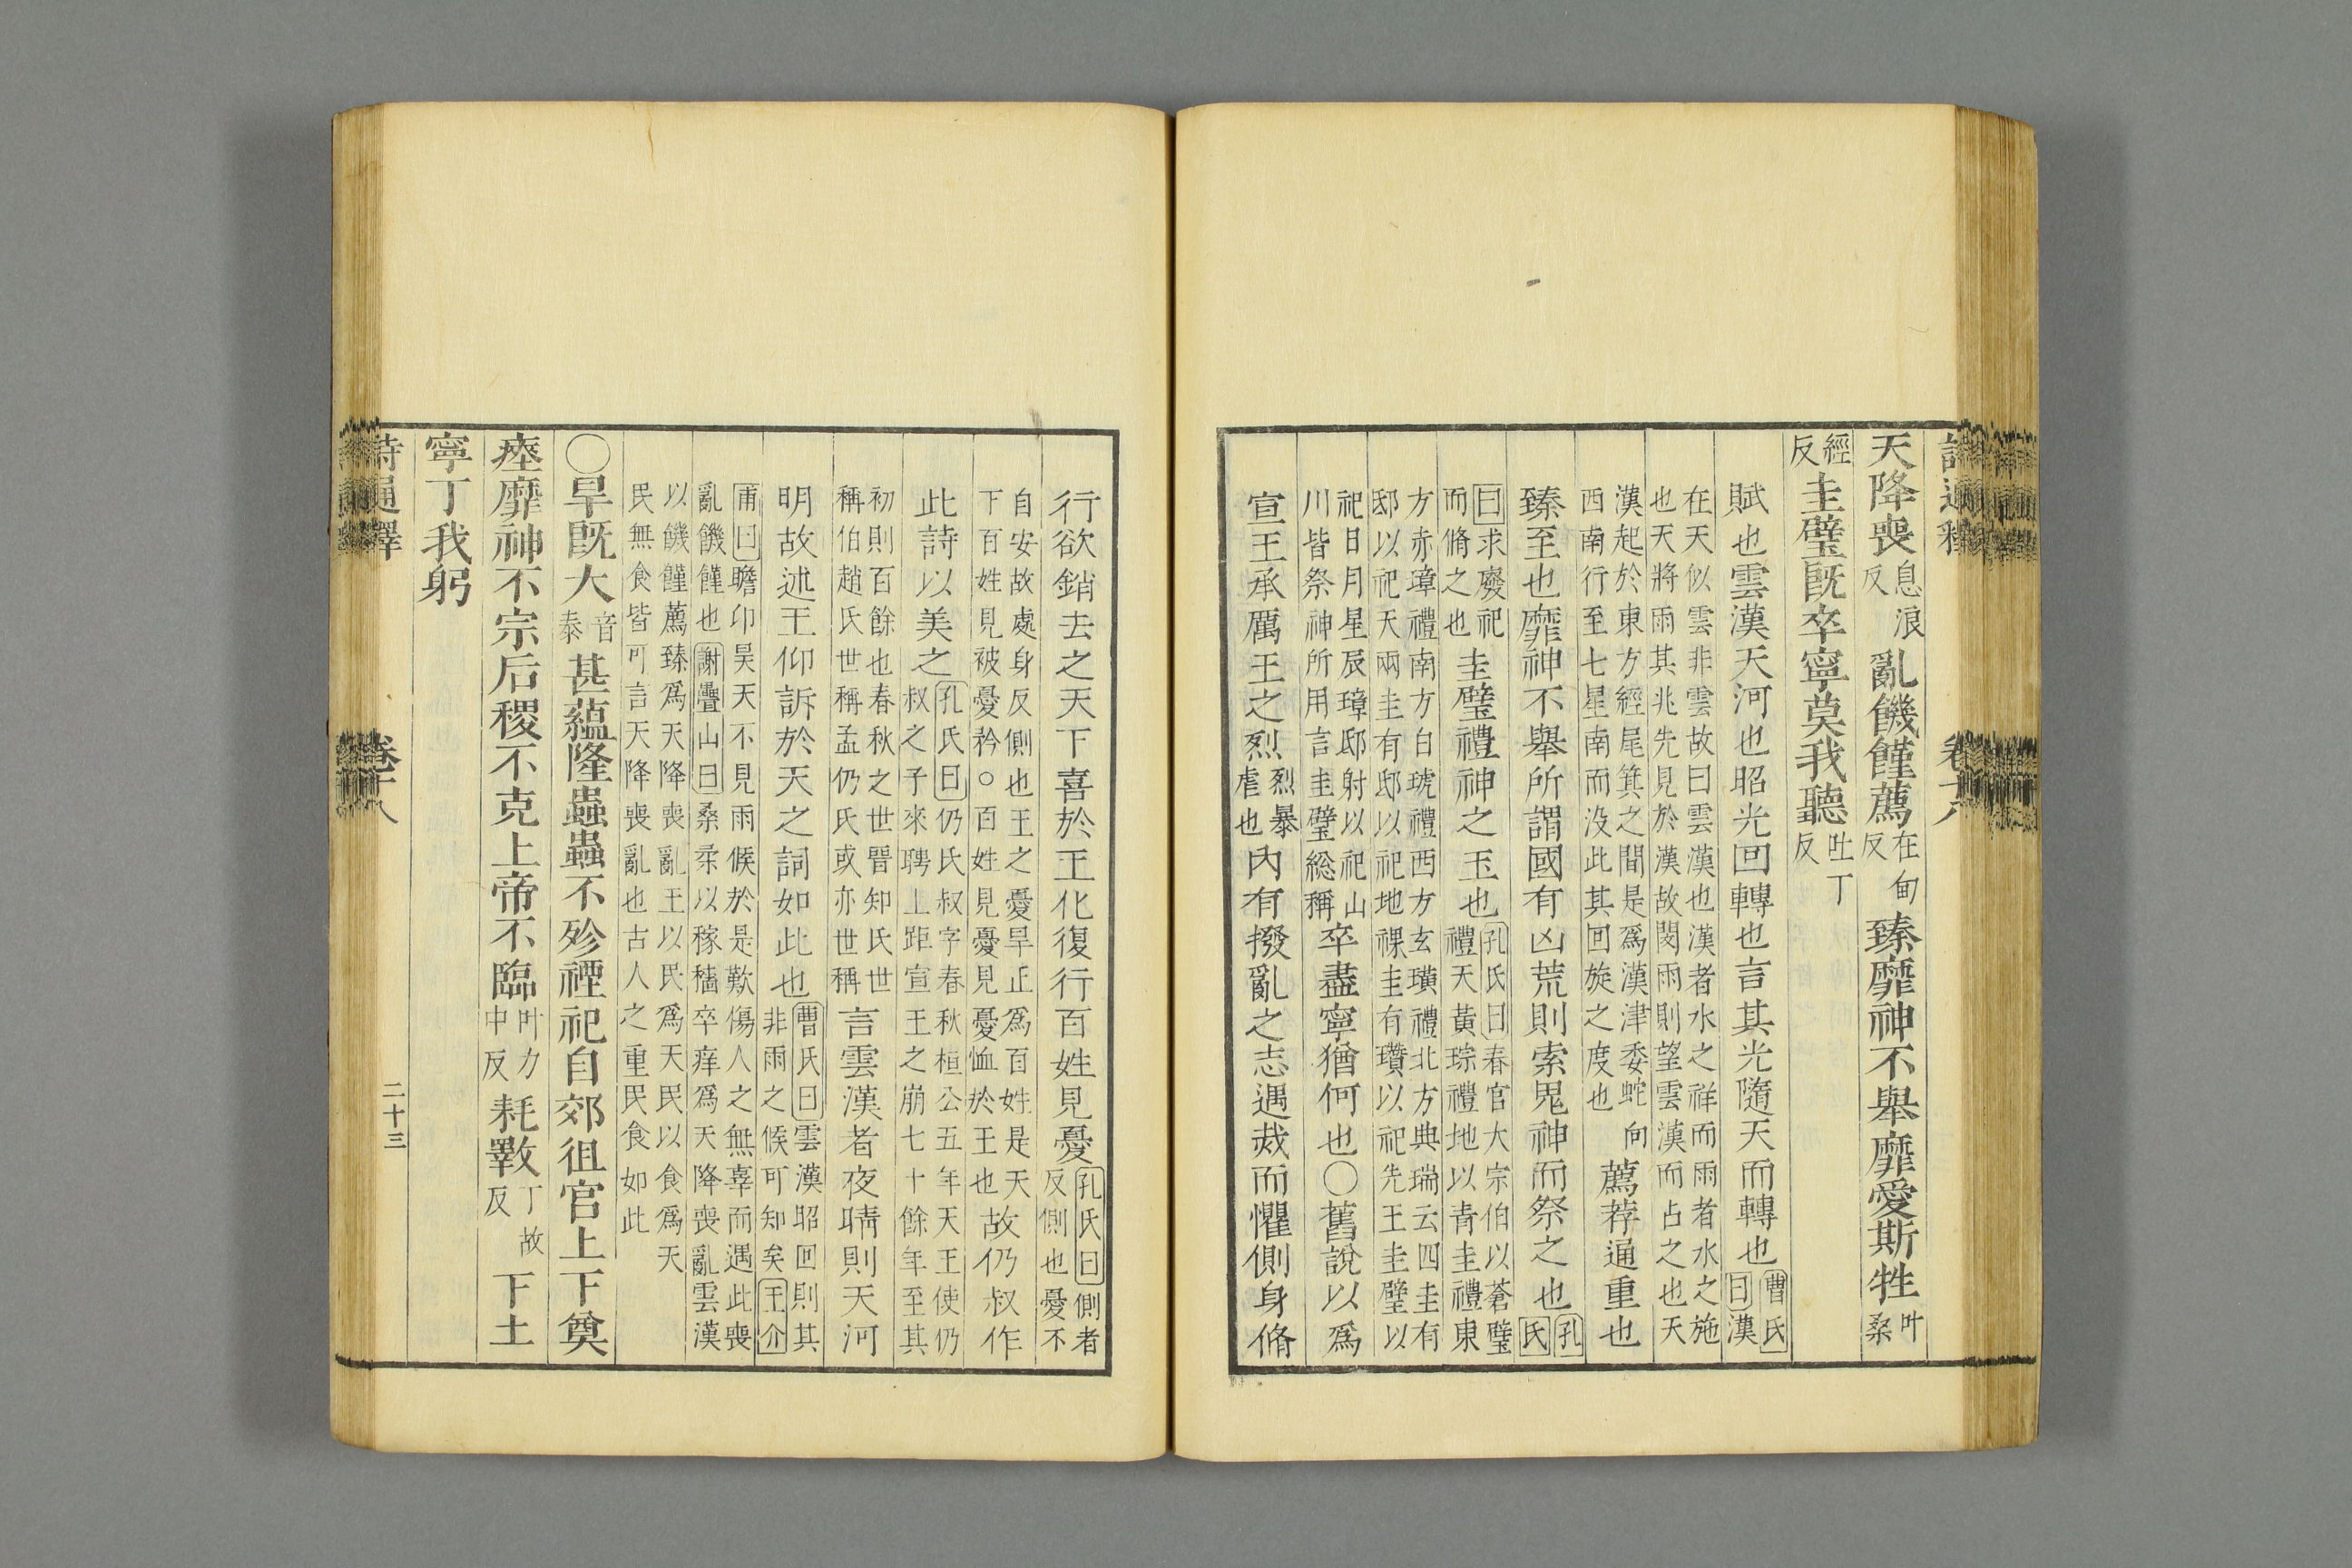 天降喪息浪反亂饑饉薦在甸反臻靡神不舉靡愛斯牲叶桑
經反圭璧旣卒寧莫我聽吐丁反
賦也雲漢天河也昭光回轉也言其光隨天而轉也曹氏曰漢
在天似雲非雲故曰雲漢也漢者水之祥而雨者水之施
也天將雨其兆先見於漢故閔雨則望雲漢而占之也天
漢起於東方經尾箕之間是爲漢津委蛇向
西南行至七星南而沒此其回旋之度也薦荐通重也
臻至也靡神不舉所謂國有凶荒則索鬼神而祭之也孔氏
曰求廢祀而脩之也圭璧禮神之玉也孔氏曰春官大宗伯以蒼璧
禮天黃琮禮地以青圭禮東
方赤璋禮南方白琥禮西方玄璜禮北方典瑞云四圭有
邸以祀天兩圭有邸以祀地祼圭有瓚以祀先王圭璧以
祀日月星辰璋邸射以祀山
川皆祭神所用言圭璧総稱卒盡寧猶何也○舊說以爲
宣王承厲王之烈烈暴虐也內有撥亂之志遇烖而懼側身脩
行欲銷去之天下喜於王化復行百姓見憂孔氏曰側者
反側也憂不
自安故處身反側也王之憂旱正爲百姓是天
下百姓見被憂矜○百姓見憂見憂恤於王也故仍叔作
此詩以美之孔氏曰仍氏叔字春秋桓公五年天王使仍
叔之子來聘上距宣王之崩七十餘年至其
初則百餘也春秋之世晉知氏世
稱伯趙氏世稱孟仍氏或亦世稱言雲漢者夜晴則天河
明故述王仰訴於天之詞如此也曹氏曰雲漢昭回則其
非雨之候可知矣王介
甫曰瞻卬昊天不見雨候於是歎傷人之無辜而遇此喪
亂饑饉也謝疊山曰桑柔以稼穡卒痒爲天降喪亂雲漢
以饑饉薦臻爲天降喪亂王以民爲天民以食爲天
民無食皆可言天降喪亂也古人之重民食如此
○旱旣大音泰甚蘊隆蟲蟲不殄禋祀自郊徂宮上下奠
瘞靡神不宗后稷不克上帝不臨叶力中反耗斁丁故反下土
寧丁我躬
詩通釋 卷十八 二十三